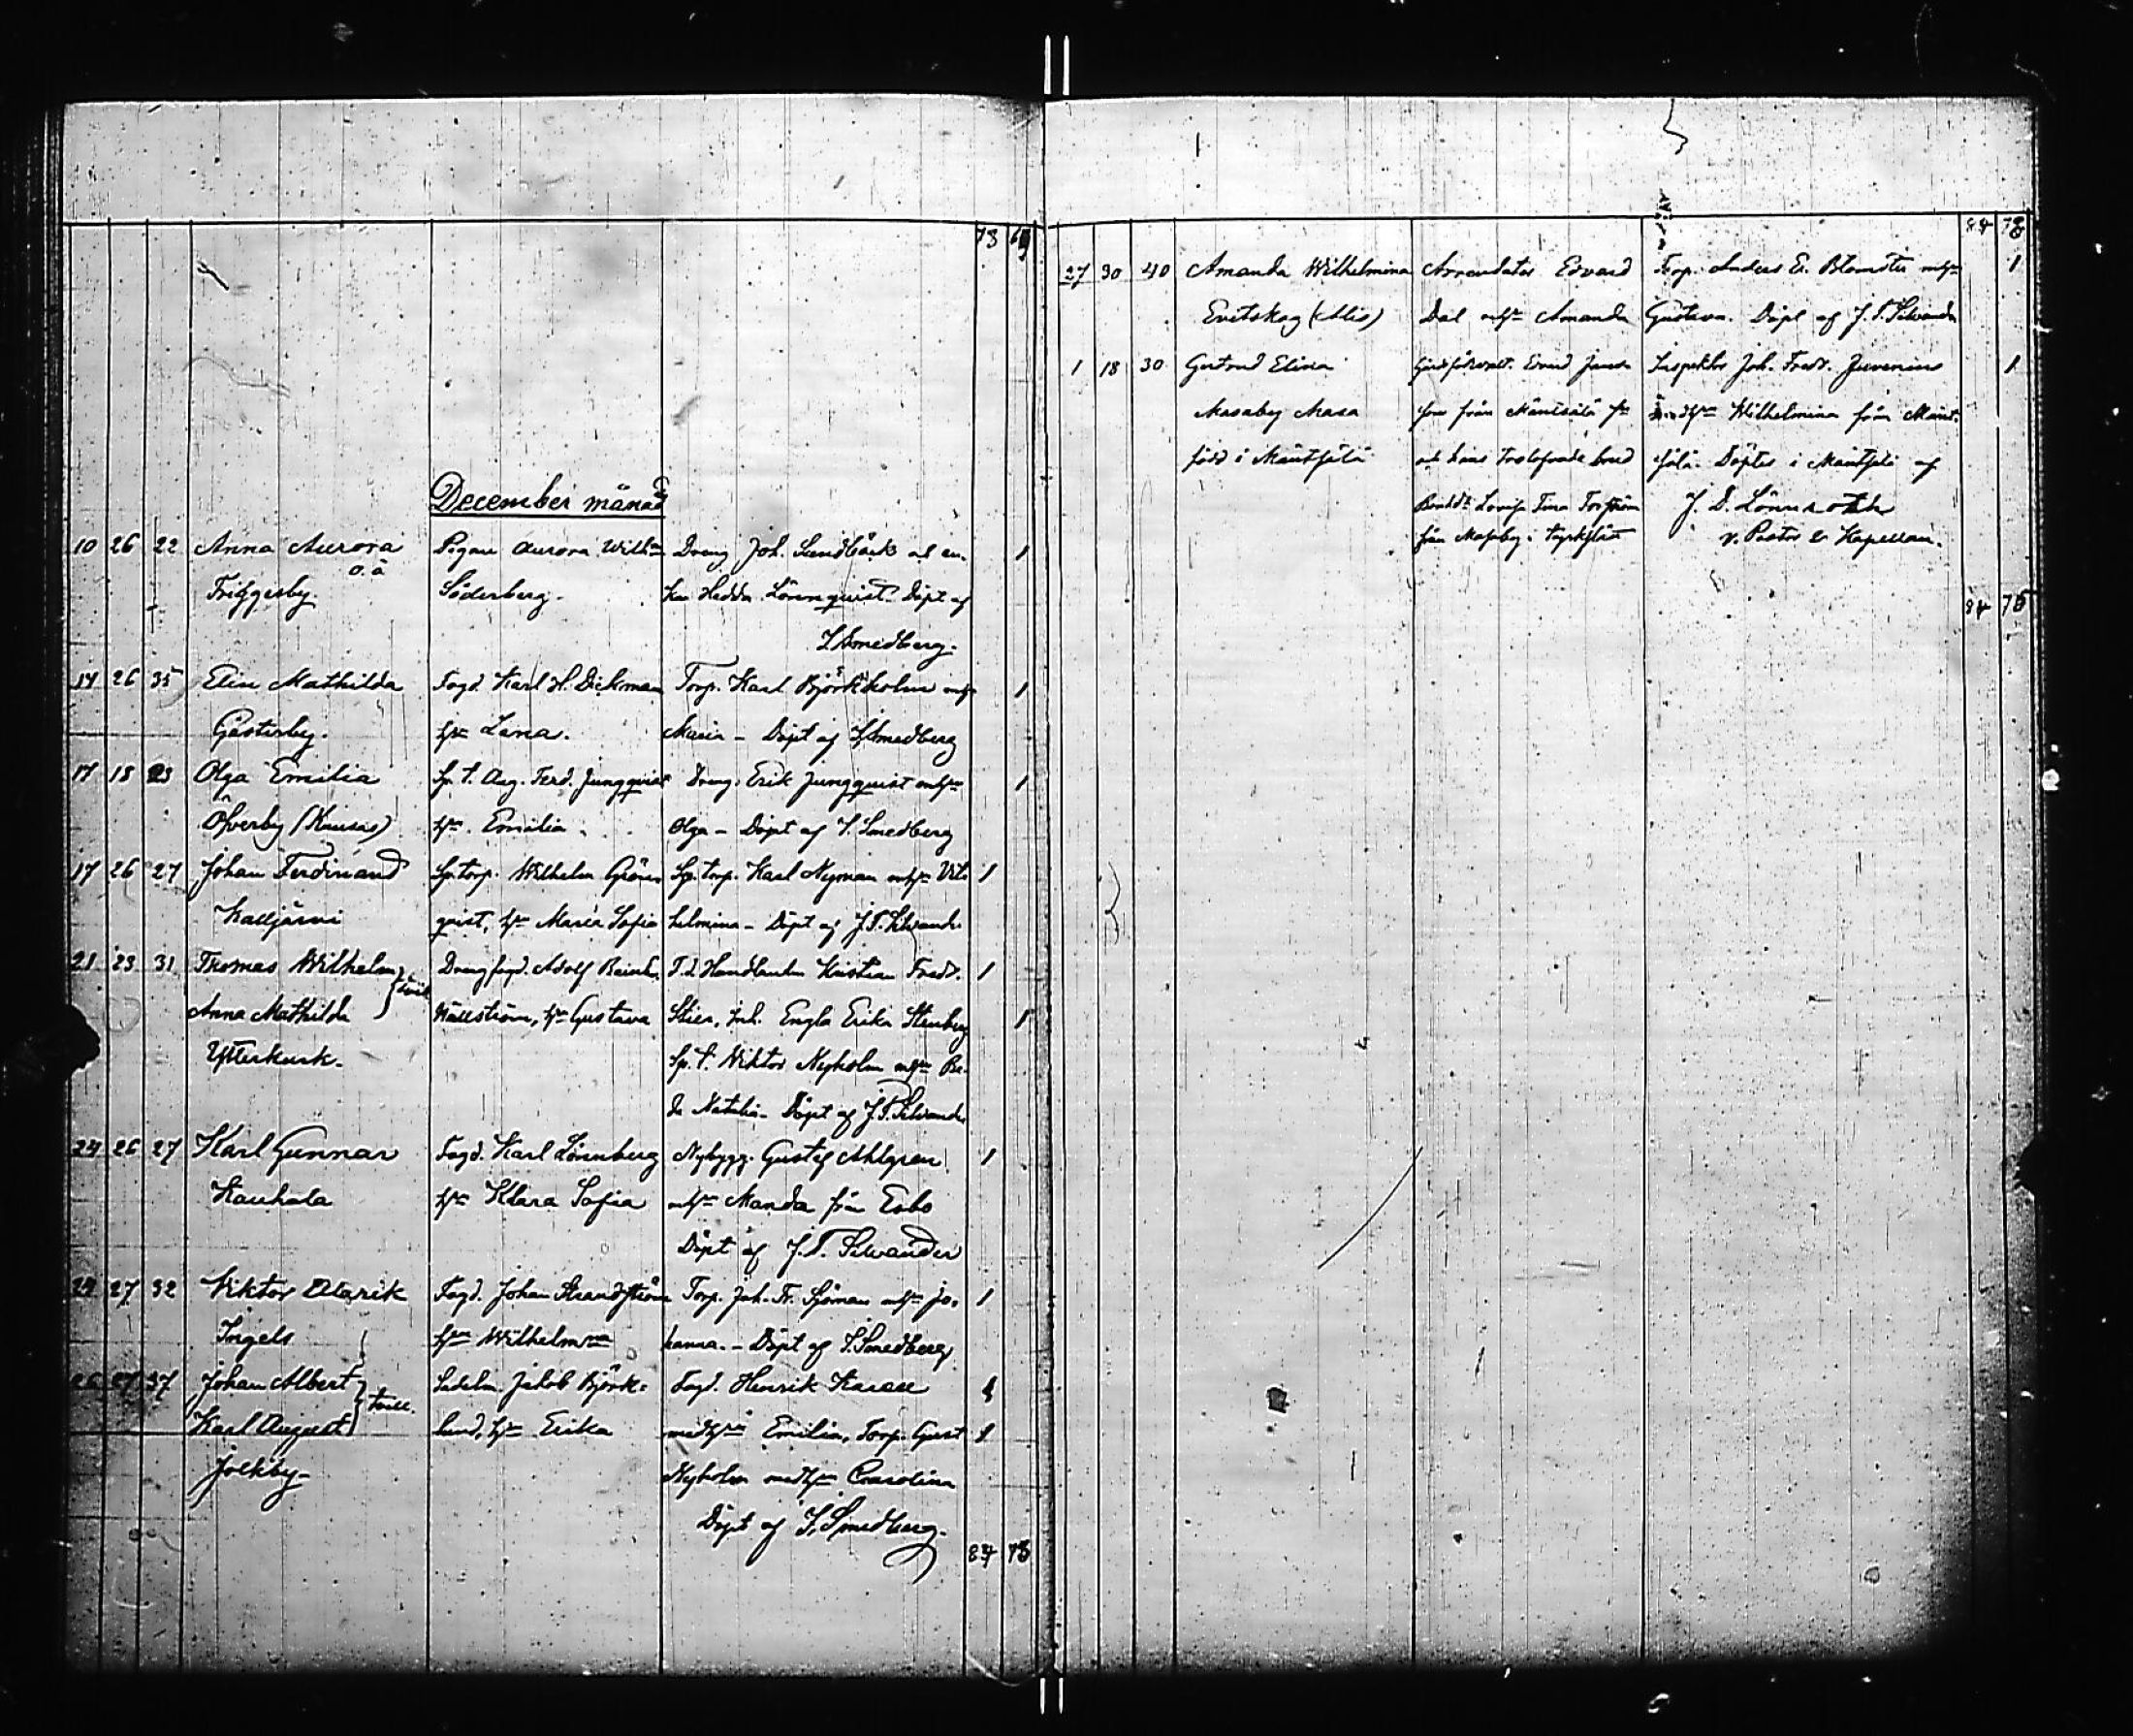 73 69
December månad
10 26 22 Anna Aurora Pigan Aurora Wilh:na Dreng Joh. Sundbäck och en- 1
o. ä
Friggesby. Söderberg. kan Hedda Lönnquist. Döpt af
J. Smedberg.
14 26 35 Elin Mathilda Fogd. Karl H. Dickman Torp. Karl Björkholm 1
Gästerby. h:u Lena. Maria – Döpt af J. Smedberg
17 18 23 Olga Emilia Sp. t. Aug. Ferd. Jungquist Dreng. Erik Jungquist 1
Öfverby (Knusas) h:u Emilia. Olga – Döpt af J. Smedberg
17 26 27 Johan Ferdinand Sp. torp. Wilhelm Grön- Sp. torp. Karl Nyman 1
Kalljärvi quist, h:u Maria Sofia helmina – Döpt af J. T. Silvander
21 23 31 Thomas Wilhelm Drengfogd. Adolf Reinh. Kristian Fredr. 1
Anna Mathilda Källström, h:u Gustava Engla Erika Stenberg 1
Ytterkurk. Sp. t. Wiktor Nyholm
da Natalia – Döpt af J. T. Silvander
24 26 27 Karl Gunnar Fogd. Karl Lönnberg Nybygg. Gustaf Ahlgren 1
Kauhala h:u Klara Sofia Manda från Esbo
Döpt af J. T. Silvander
24 27 32 Viktor Alarik Fogd. Johan Strandström Torp. Joh. Fr. Sjöman Jo- 1
Ingels h:u Wilhelmina hanna. – Döpt af J. Smedberg
26 27 37 Johan Albert Jakob Björk- Fogd. Henrik Karell 1
tvill.
Karl August lund, h:u Erika med h:u Emilia, Torp. Gust 1
Jolkby – Nyholm med h:u Carolina
Döpt af J. Smedberg.
84 75
84 75
27 30 40 Amanda Wilhelmina Arrendator Edvard Torp. Anders E. Blomster 1
Evitskog (Alis) Dal Amanda Gustava. Döpt af J. T. Silvander
1 18 30 Gertrud Elina Edvard Inspektor Joh. Fredr. Juvenius 1
Masaby Masa från Mäntsälä Wilhelmina från Mänt-
född i Mäntsälä och hans trolofvade brud sälä. Döptes i Mäntsälä af
Lovisa J. D. Lönnroth
från Masaby i Kyrkslätt v. Pastor & Kapellan.
84 76